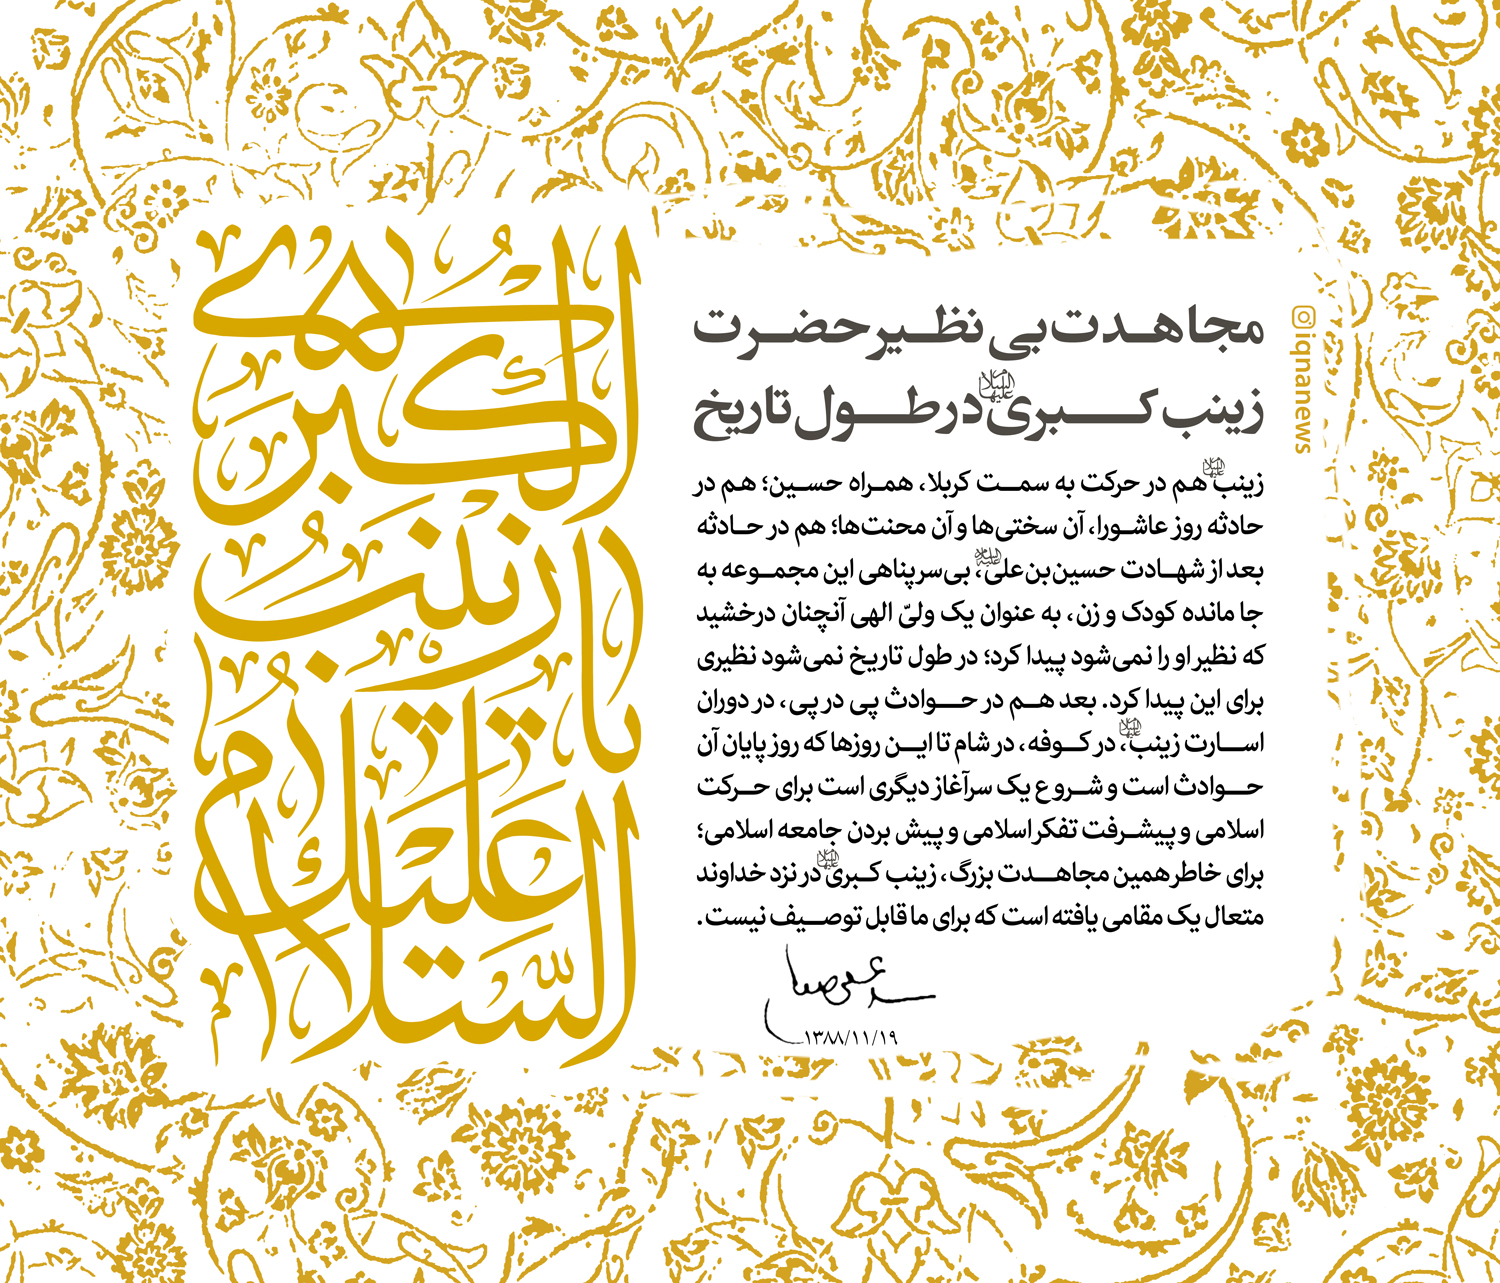 مجاهدت بی نظیر حضرت
زینب کبری علیها السلام در طول تاریخ
زینب علیها السلام هم در حرکت به سمت کربلا، همراه حسین؛ هم در
حادثه روز عاشورا، آن سختی‌ها و آن محنت‌ها؛ هم در حادثه
بعد از شهادت حسین‌بن‌علی علیه السلام، بی‌سرپناهی این مجموعه به
جا مانده کودک و زن، به عنوان یک ولیّ الهی آنچنان درخشید
که نظیر او را نمی‌شود پیدا کرد؛ در طول تاریخ نمی‌شود نظیری
برای این پیدا کرد. بعد هم در حوادث پی در پی، در دوران
اسارت زینب علیها السلام، در کوفه، در شام تا این روزها که روز پایان آن
حوادث است و شروع یک سرآغاز دیگری است برای حرکت
اسلامی و پیشرفت تفکر اسلامی و پیش بردن جامعه اسلامی؛
برای خاطر همین مجاهدت بزرگ، زینب کبری علیها السلام در نزد خداوند
متعال یک مقامی یافته است که برای ما قابل توصیف نیست.
۱۳۸۸/۱۱/۱۹
iqnanews
السلام علیک
یا زینب
الکبری